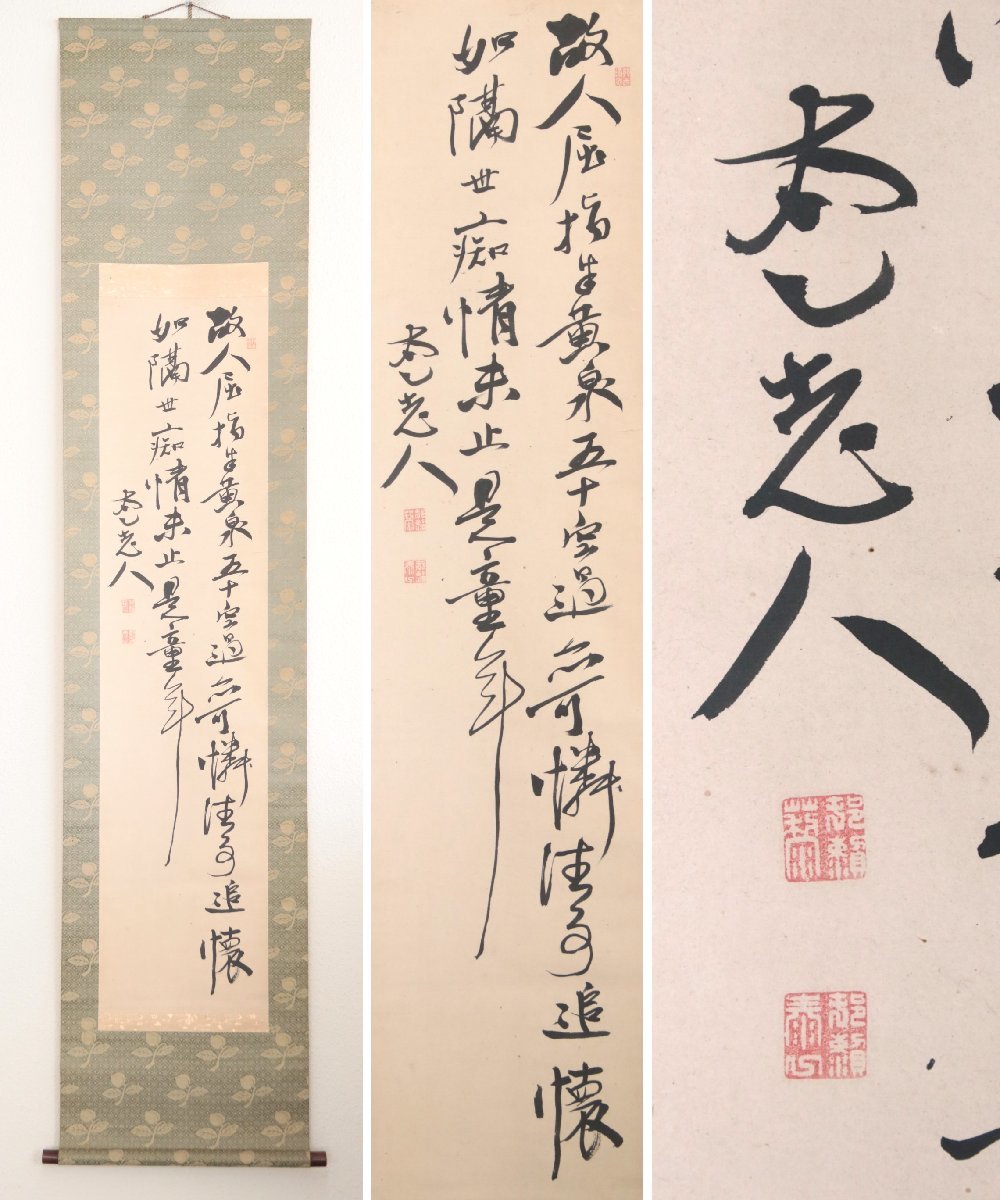 故人屈指半黄泉五十空過亦可憐往事追懷
如隔世痴情未止是童年
老人
故人屈指半黄泉五十空過亦可憐往事追懷
如隔世痴情未止是童年
老人
老人